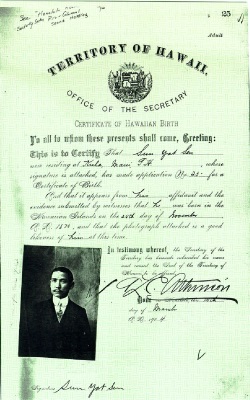 25
TERRITORY OF HAWAII.
OFFICE OF THE SECRETARY
CERTIFICATE OF HAWAIIAN BIRTH
To all to whom these presents shall come, Greeting:
This is to Certify That Sun Yat Sen
now residing at Kula Maui T.H., whose
signature is attached, has made application No 25 for a
Certificate of Birth.
And that it appears from his affidavit and the
evidence submitted by witnesses that he was born in the
Hawaiian Islands on the 24th day of November
A. D. 1870, and that the photograph attached is a good
likeness of him at this time.
In testimony whereof, the Secretary of the
Territory has hereunto subscribed his name
and caused the Seal of the Territory of
Hawaii to be affixed.
A. L. C. Atkinson
day of March
A. D. 190
Signature Sun Yat Sen